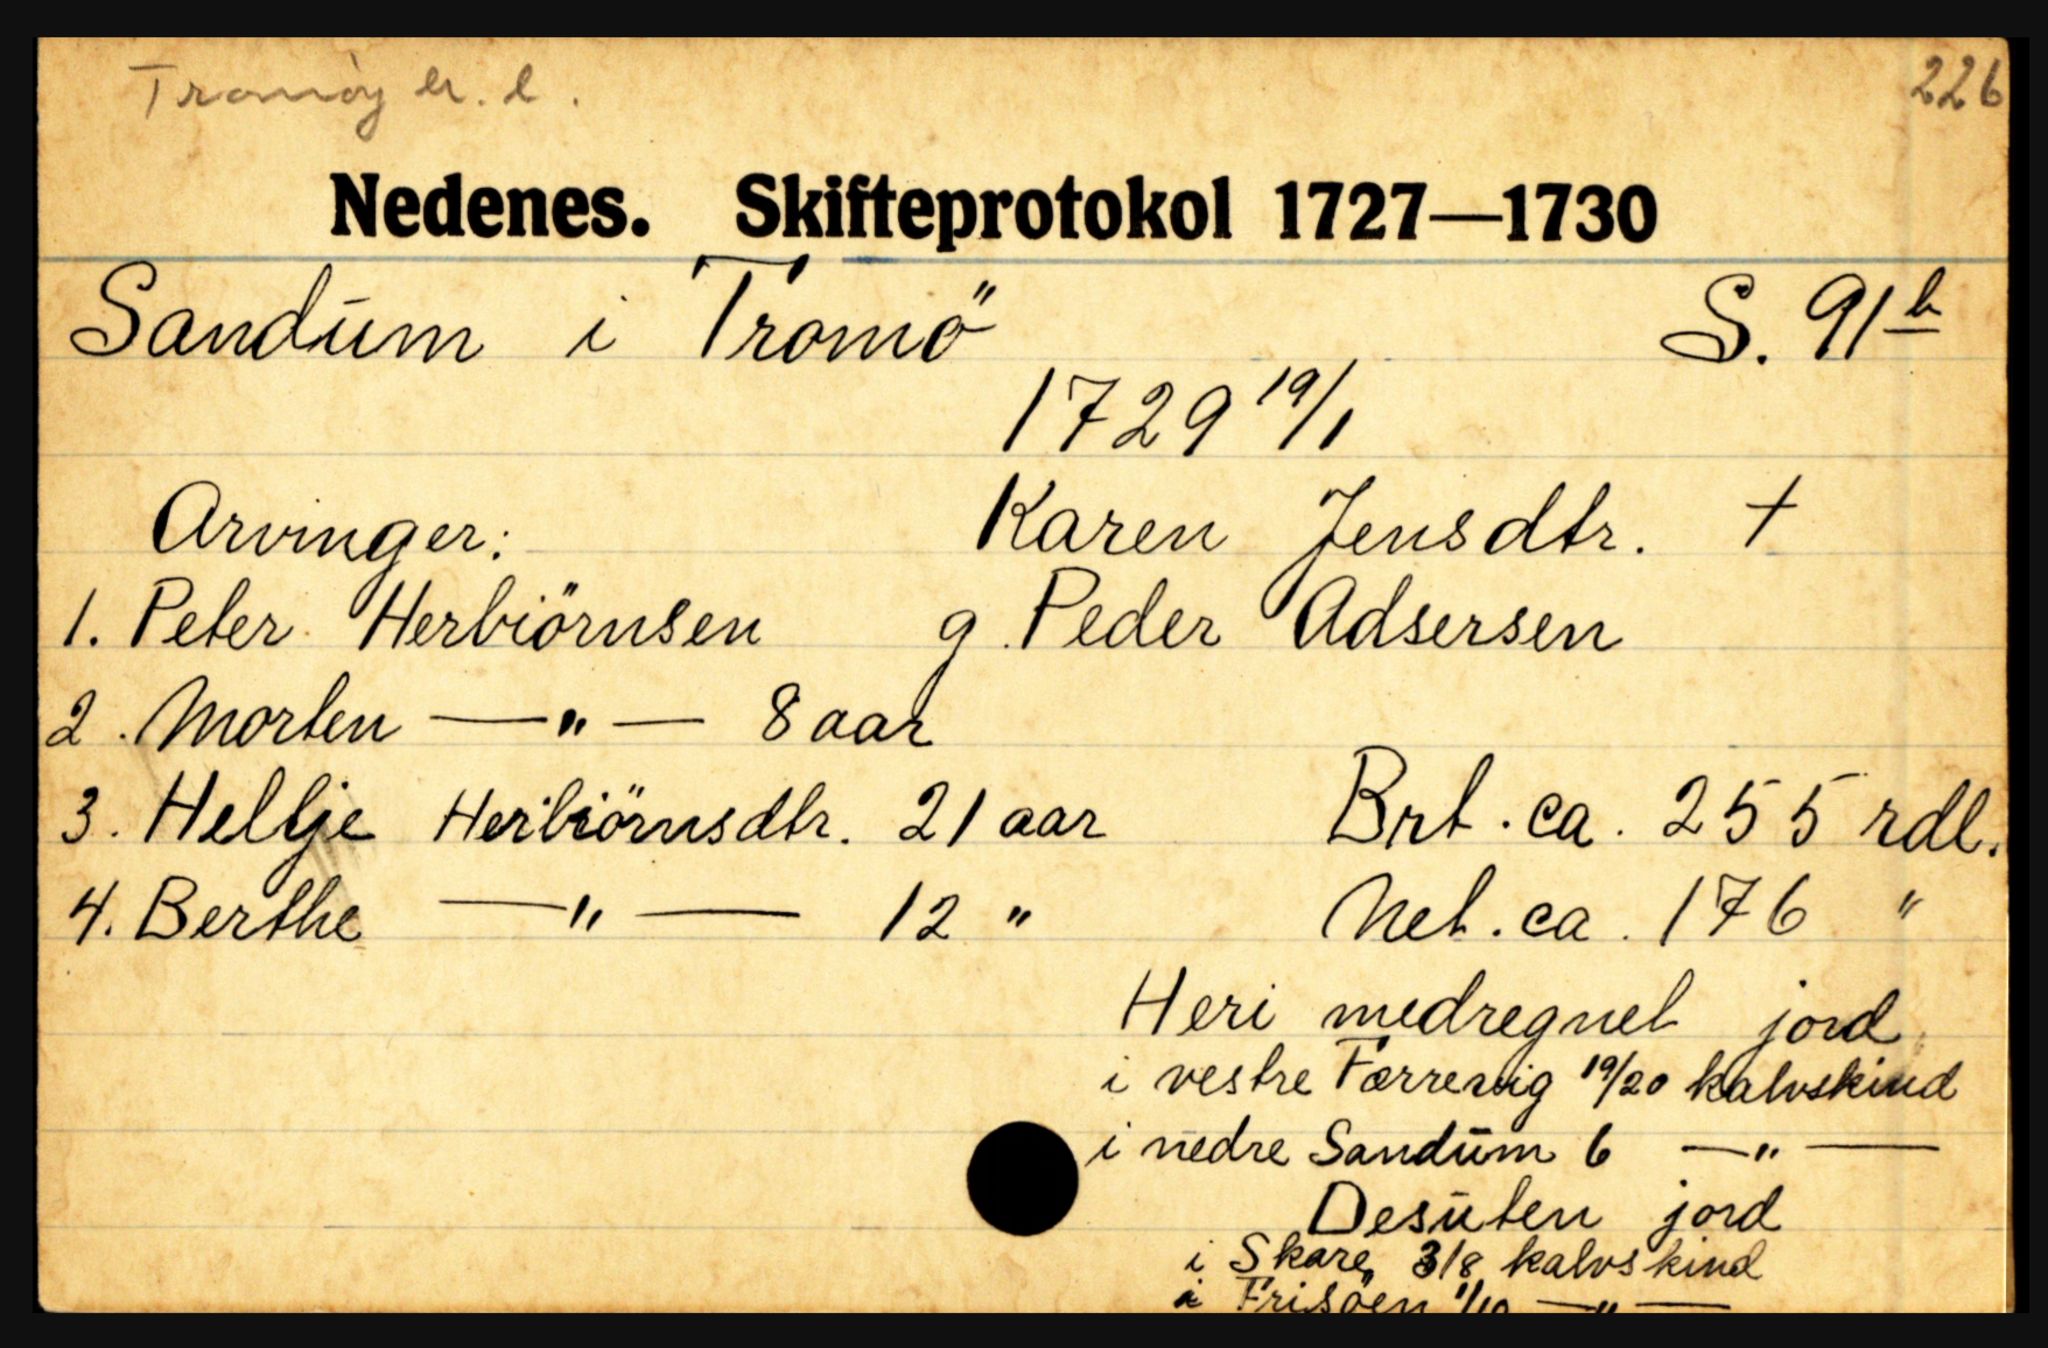 Tromøy 226
Nedenes. Skifteprotokol 1727—1730
Sandum i Tromö S. 91b
1729 19/1
Arvinger: Karen Jensdtr. +
1. Peter Herbiörnsen g. Peder Adsersen
2. Morten —"— 8 aar
3. Heltje Herbiörnsdtr. 21 aar Brt. ca. 255 rdl.
4. Berthe —"— 12 " Net. ca. 176 "
Heri medregnet jord
i vestre Færrevig 19/20 kalvskind
i nedre Sandum 6 —"—
Desuten jord
i Skare, 3/8 kalvskind
i Frisöen 1/10 —"—